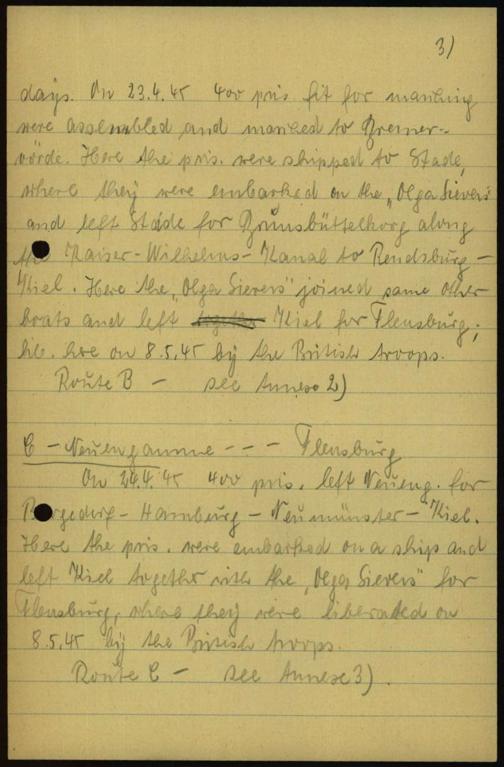 3)
days. On 23.4.45 400 pris. fit for marching
were assembled and marched to Bremer-
vörde. Here the pris. were shipped to Stade,
where they were embarked on the „Olga Sievers"
and left Stade for Brunsbüttelkorg along
the Kaiser-Wilhelms-Kanal to Rendsburg -
Kiel. Here the „Olga Sievers" joined some other
boats and left Kiel for Flensburg;
lib. here on 8.5.45 by the British troops.
Route B - see Annexe 2)
C - Neuengamme --- Flensburg
On 24.4.45 400 pris. left Neueng. for
Bergedorf - Hamburg - Neumünster - Kiel.
Here the pris. were embarked on a ship and
left Kiel together with the „Olga Sievers" for
Flensburg, where they were liberated on
8.5.45 by the British troops.
Route C - see Annexe 3).